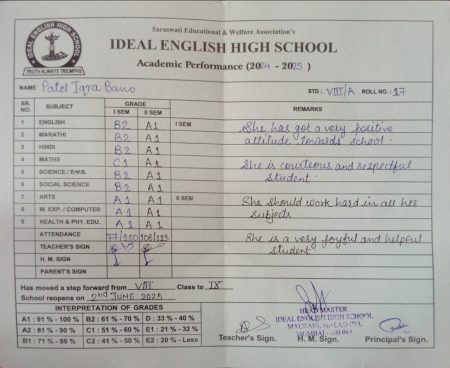 Saraswati Educational & Welfare Association's
IDEAL ENGLISH HIGH SCHOOL
Academic Performance (2024 - 2025)
IDEAL ENGLISH HIGH SCHOOL
TRUTH ALWAYS TRIUMPHS
NAME Patel Iqra Bano STD : VIII/A ROLL NO. : 17
SR. NO. SUBJECT GRADE REMARKS
I SEM II SEM
1 ENGLISH B2 A1 I SEM She has got a very positive
2 MARATHI B2 A1 attitude towards school.
3 HINDI B2 A1
4 MATHS C1 A1 She is courteous and respectful
5 SCIENCE / D.V.S. B2 A1 student.
6 SOCIAL SCIENCE B2 A1
7 ARTS A1 A1 II SEM She should work hard in all her
8 W. EXP. / COMPUTER A1 A1 subjects.
9 HEALTH & PHY. EDU. A1 A1
ATTENDANCE 77/100 108/113 She is a very joyful and helpful
TEACHER'S SIGN student
H. M. SIGN
PARENT'S SIGN
Has moved a step forward from VIII Class to IX
School reopens on 2nd JUNE 2025
INTERPRETATION OF GRADES
A1 : 91% - 100% B2 : 61% - 70% D : 33% - 40%
A2 : 81% - 90% C1 : 51% - 60% E1 : 21% - 32%
B1 : 71% - 80% C2 : 41% - 50% E2 : 20% - Less
HEAD MASTER
IDEAL ENGLISH HIGH SCHOOL
Teacher's Sign. H. M. Sign. Principal's Sign.